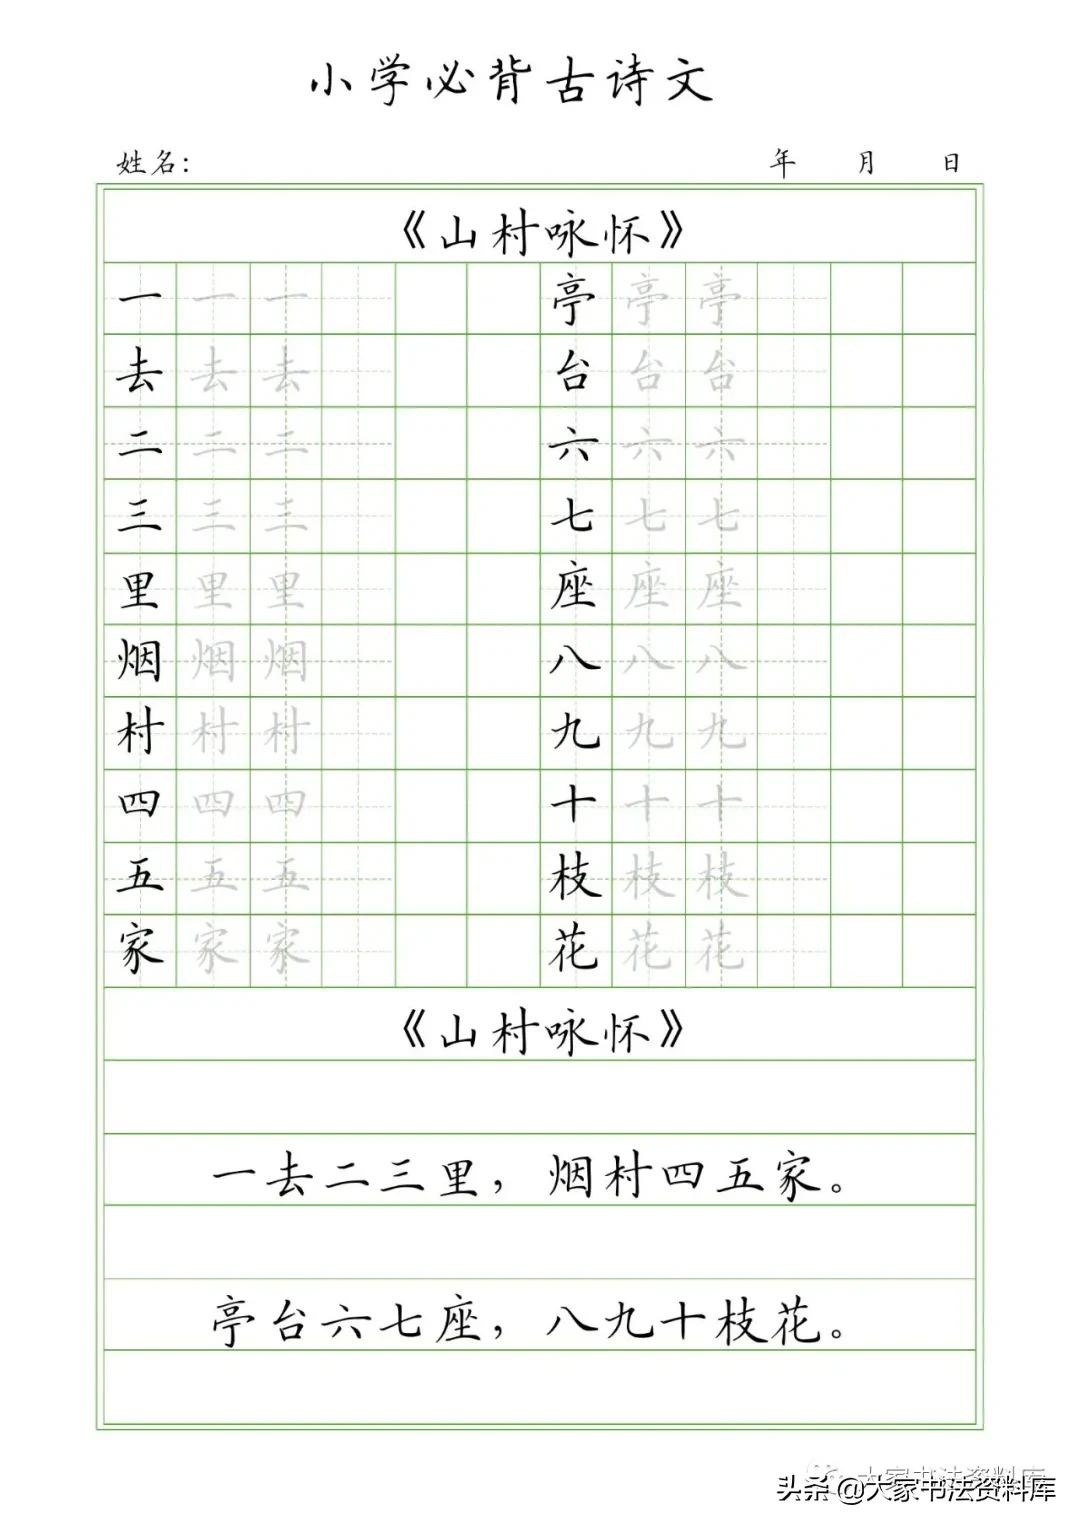 小学必背古诗文
姓名： 年 月 日
《山村咏怀》
一 一 一 亭 亭 亭
去 去 去 台 台 台
二 二 二 六 六 六
三 三 三 七 七 七
里 里 里 座 座 座
烟 烟 烟 八 八 八
村 村 村 九 九 九
四 四 四 十 十 十
五 五 五 枝 枝 枝
家 家 家 花 花 花
《山村咏怀》
一去二三里，烟村四五家。
亭台六七座，八九十枝花。
大家书法资料库
头条 @大家书法资料库